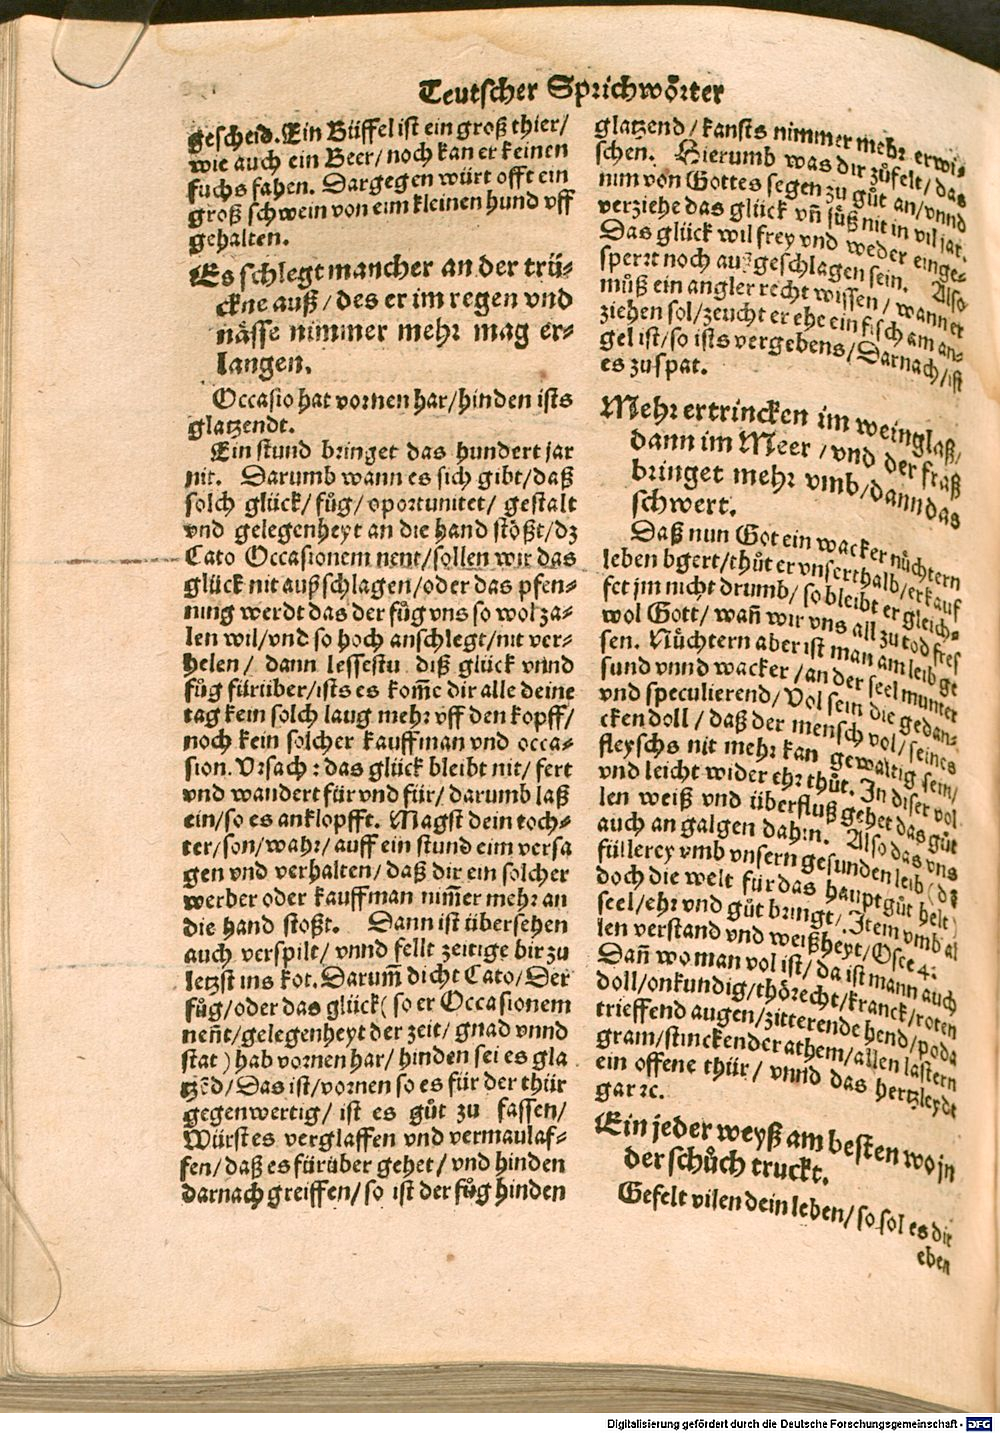 Teutscher Sprichwörter
gescheid. Ein Büffel ist ein groß thier/
wie auch ein Beer/ noch kan er keinen
fuchs fahen. Dargegen würt offt ein
groß schwein von eim kleinen hund vff
gehalten.
Es schlegt mancher an der trü-
ckne auß/ des er im regen vnd
nässe nimmer mehr mag er-
langen.
Occasio hat vornen har/ hinden ists
glatzendt.
Ein stund bringet das hundert jar
nit. Darumb wann es sich gibt/ daß
solch glück/ fůg/ oportunitet/ gestalt
vnd gelegenheyt an die hand stößt/ dz
Cato Occasionem nent/ sollen wir das
glück nit außschlagen/ oder das pfen-
ning werdt das der fůg vns so wol za-
len wil/ vnd so hoch anschlegt/ nit ver-
helen/ dann lessestu diß glück vnnd
fůg fürüber/ ists es kom̃e dir alle deine
tag kein solch laug mehr vff den kopff/
noch kein solcher kauffman vnd occa-
sion. Vrsach: das glück bleibt nit/ fert
vnd wandert für vnd für/ darumb laß
ein/ so es anklopfft. Magst dein toch-
ter/ son/ wahr/ auff ein stund eim versa
gen vnd verhalten/ daß dir ein solcher
werber oder kauffman nim̃er mehr an
die hand stoßt. Dann ist übersehen
auch verspilt/ vnnd fellt zeitige bir zu
letzst ins kot. Darum̃ dicht Cato/ Der
fůg/ oder das glück (so er Occasionem
nen̄t/ gelegenheyt der zeit/ gnad vnnd
stat) hab vornen har/ hinden sei es gla
tzēd/ Das ist/ vornen so es für der thür
gegenwertig/ ist es gůt zu fassen/
Würst es verglaffen vnd vermaulaf-
fen/ daß es fürüber gehet/ vnd hinden
darnach greiffen/ so ist der fůg hinden
glatzend/ kansts nimmer mehr erwi-
schen. Hierumb was dir zůfelt/ das
nim von Gottes segen zu gůt an/ vnnd
verziehe das glück vn̄ süß nit in vil jar.
Das glück wil frey vnd weder einge-
sperrt noch außgeschlagen sein. Also
můß ein angler recht wissen/ wann er
ziehen sol/ zeucht er ehe ein fisch am an-
gel ist/ so ists vergebens/ Darnach/ ist
es zu spat.
Mehr ertrincken im weinglaß/
dann im Meer/ vnd der fraß
bringet mehr vmb/ dann das
schwert.
Daß nun Got ein wacker nůchtern
leben bgert/ thůt er vnserthalb/ er kauf
fet jm nicht drumb/ so bleibt er gleich-
wol Gott/ wan̄ wir vns all zu tod fres
sen. Nůchtern aber ist man am leib ge
sund vnnd wacker/ an der seel munter
vnd speculierend/ Vol sein die gedan-
cken doll/ daß der mensch vol/ seines
fleyschs nit mehr kan gewaltig sein/
vnd leicht wider ehr thůt. In diser vol
len weiß vnd überfluß gehet das gůt
auch an galgen dahin. Also das vns
füllerey vmb vnsern gesunden leib (dz
doch die welt für das hauptgůt helt)
seel/ ehr vnd gůt bringt/ Item vmb al
len verstand vnd weißheyt/ Osee 4.
Dan̄ wo man vol ist/ da ist mann auch
doll/ onkundig/ thörecht/ kranck/ roten
trieffend augen/ zitterende hend/ poda
gram/ stinckender athem/ allen lastern
ein offene thür/ vnnd das hertzleydt
gar ꝛc.
Ein jeder weyß am besten wo jn
der schůch truckt.
Gefelt vilen dein leben/ so sol es dir
eben
Digitalisierung gefördert durch die Deutsche Forschungsgemeinschaft - DFG